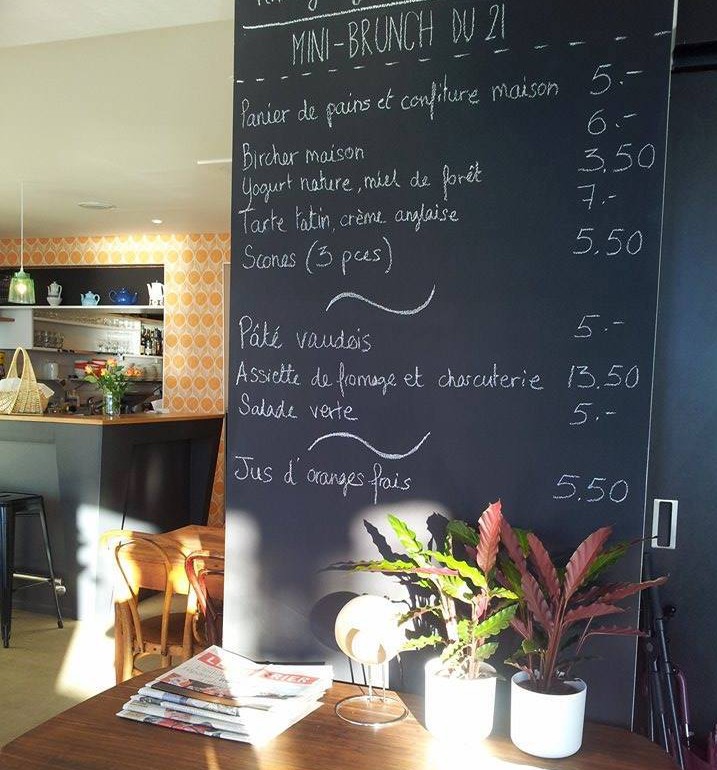 MINI-BRUNCH DU 21
Panier de pains et confiture maison 5.-
Bircher maison 6.-
Yogurt nature, miel de forêt 3,50
Tarte tatin, crème anglaise 7.-
Scones (3 pces) 5,50
Pâté vaudois 5.-
Assiette de fromage et charcuterie 13.50
Salade verte 5.-
Jus d'oranges frais 5.50